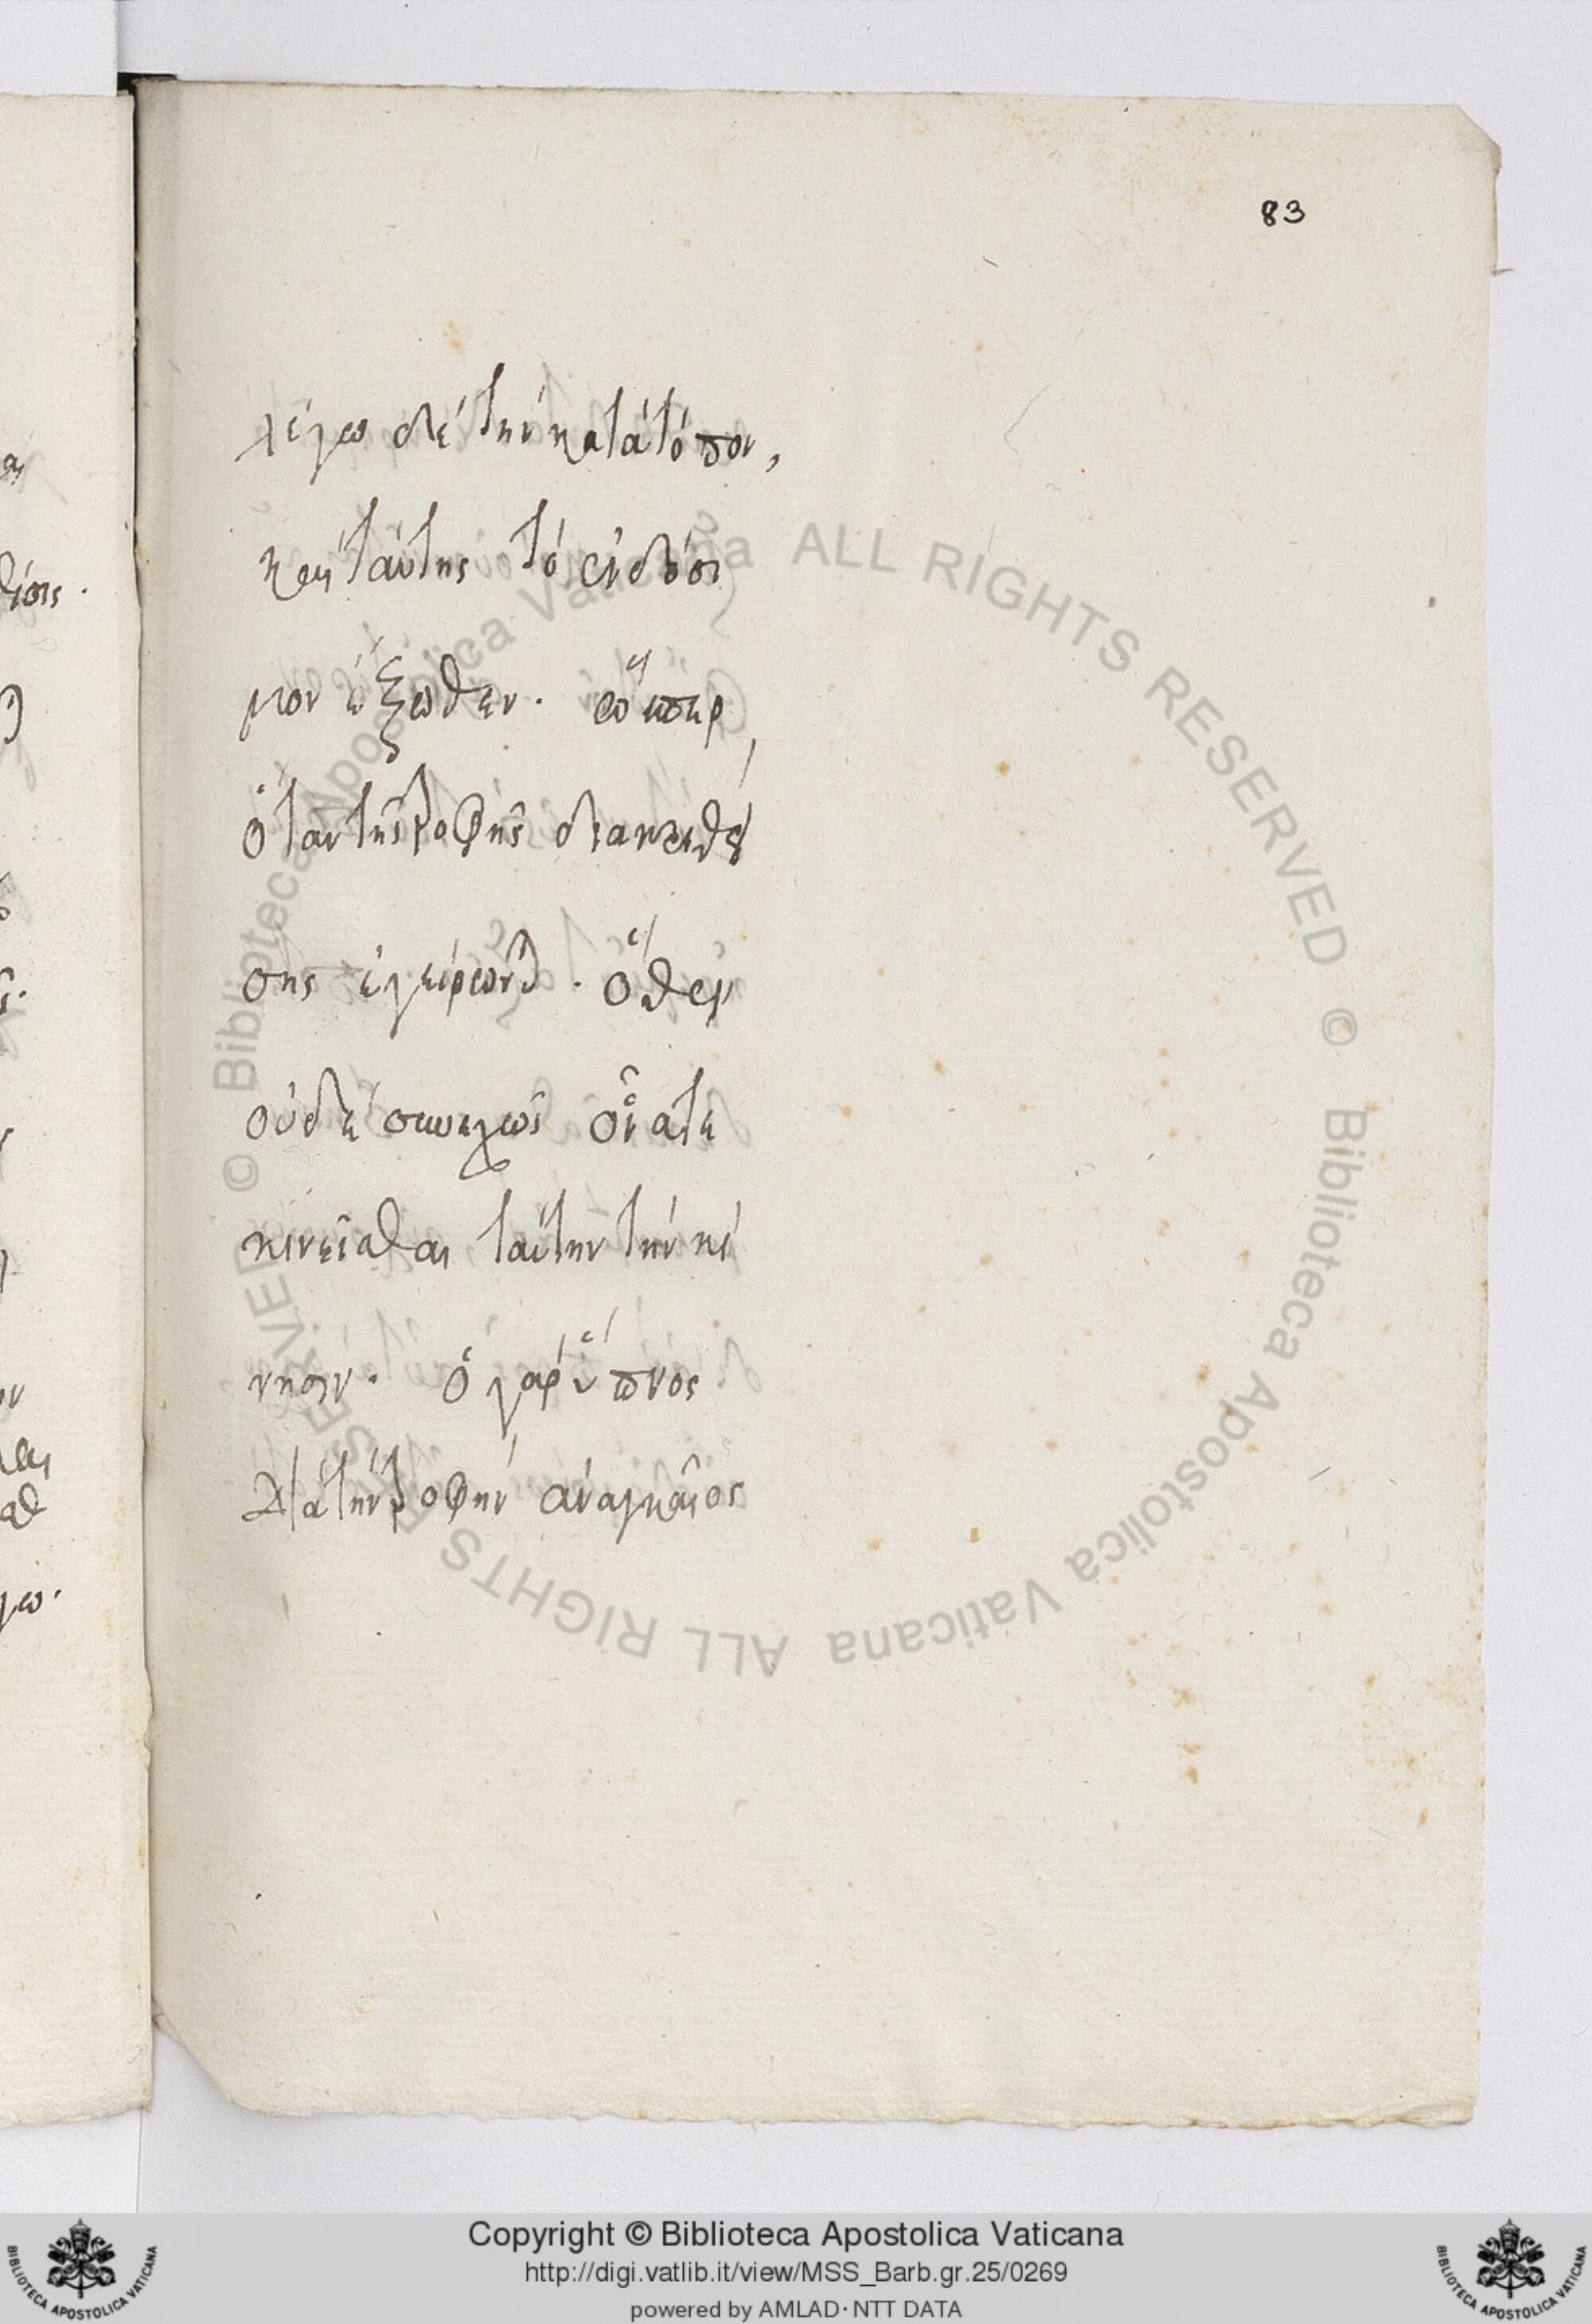 83
λέγω δέ τὴν κατὰ τόπον,
καὶ ταύτης τὸ ἐνδόσι
μον ἔξωθεν. ὥσπερ
ὅταν τῆς τροφῆς διακριθεί
σης ἐγείρωνται. ὅθεν
οὐδὲ συνεχῶς οἷά τε
κινεῖσθαι ταύτην τὴν κί
νησιν. ὁ γὰρ ὕπνος
διὰ τὴν τροφὴν ἀναγκαῖος
© Biblioteca Apostolica Vaticana ALL RIGHTS RESERVED © Biblioteca Apostolica Vaticana ALL RIGHTS RESERVED
Copyright © Biblioteca Apostolica Vaticana
http://digi.vatlib.it/view/MSS_Barb.gr.25/0269
powered by AMLAD·NTT DATA
BIBLIOTECA APOSTOLICA VATICANA
BIBLIOTECA APOSTOLICA VATICANA